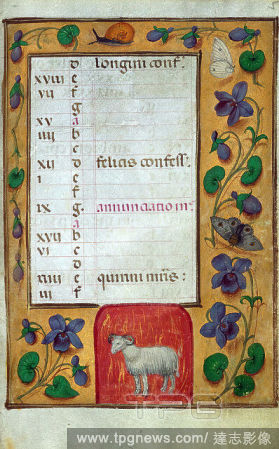 d longini conf.
xviii e
vii f
g
xv a
iiii b
c
xii d felicis confess.
i e
f
ix g annunciatio m.
a
xvii b
vi c
d
xiiii e quirini mris:
iii f
TPG
www.tpgnews.com / 達志影像